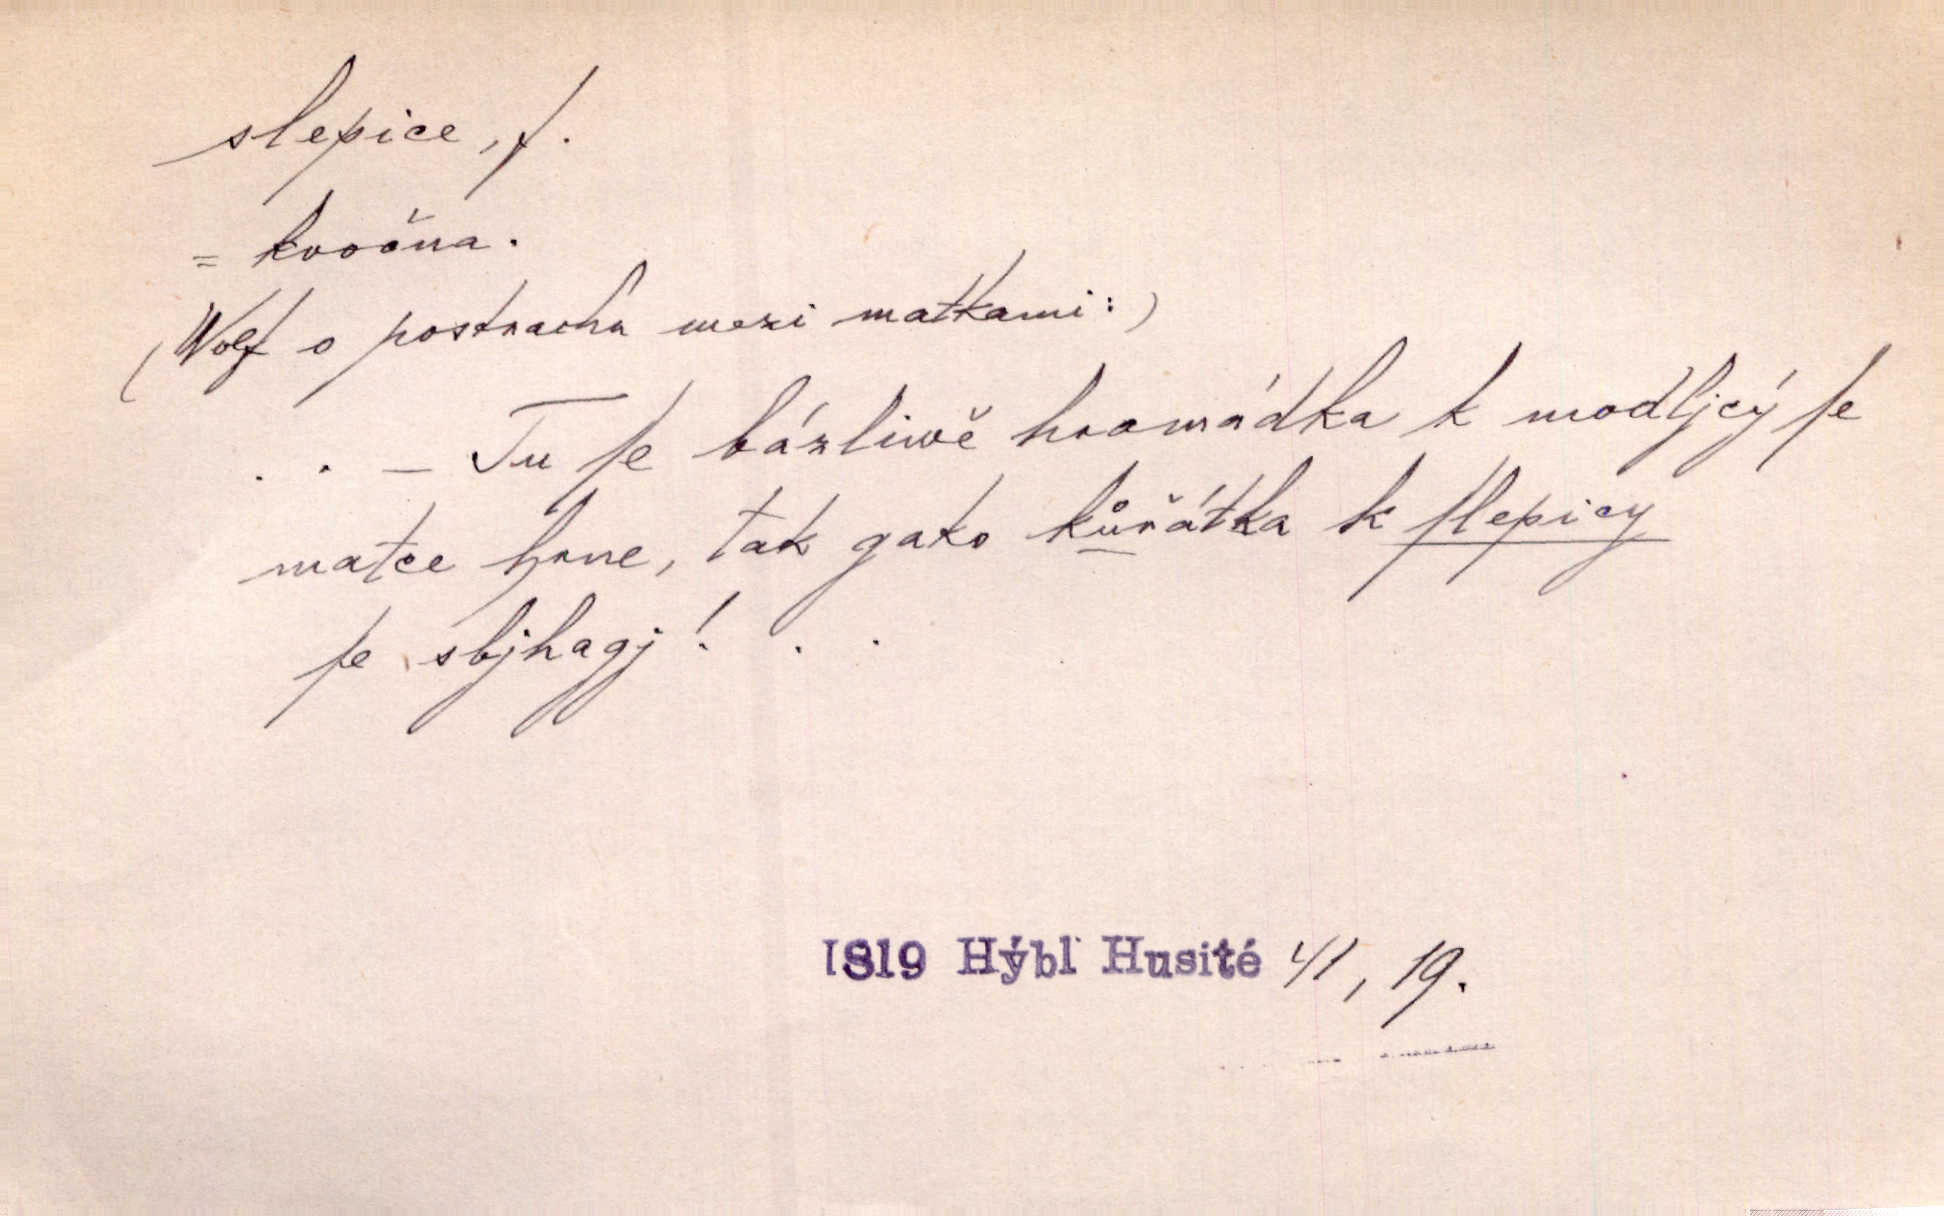 slepice, f.
= kvočna.
(Wolf o postrachu mezi matkami:)
. . – Tu ſe bázliwě hromádka k modljcý ſe
matce hrne, tak gako kůřátka k ſlepicy
ſe sbjhagj! . .
1819 Hýbl Husité 41, 19.